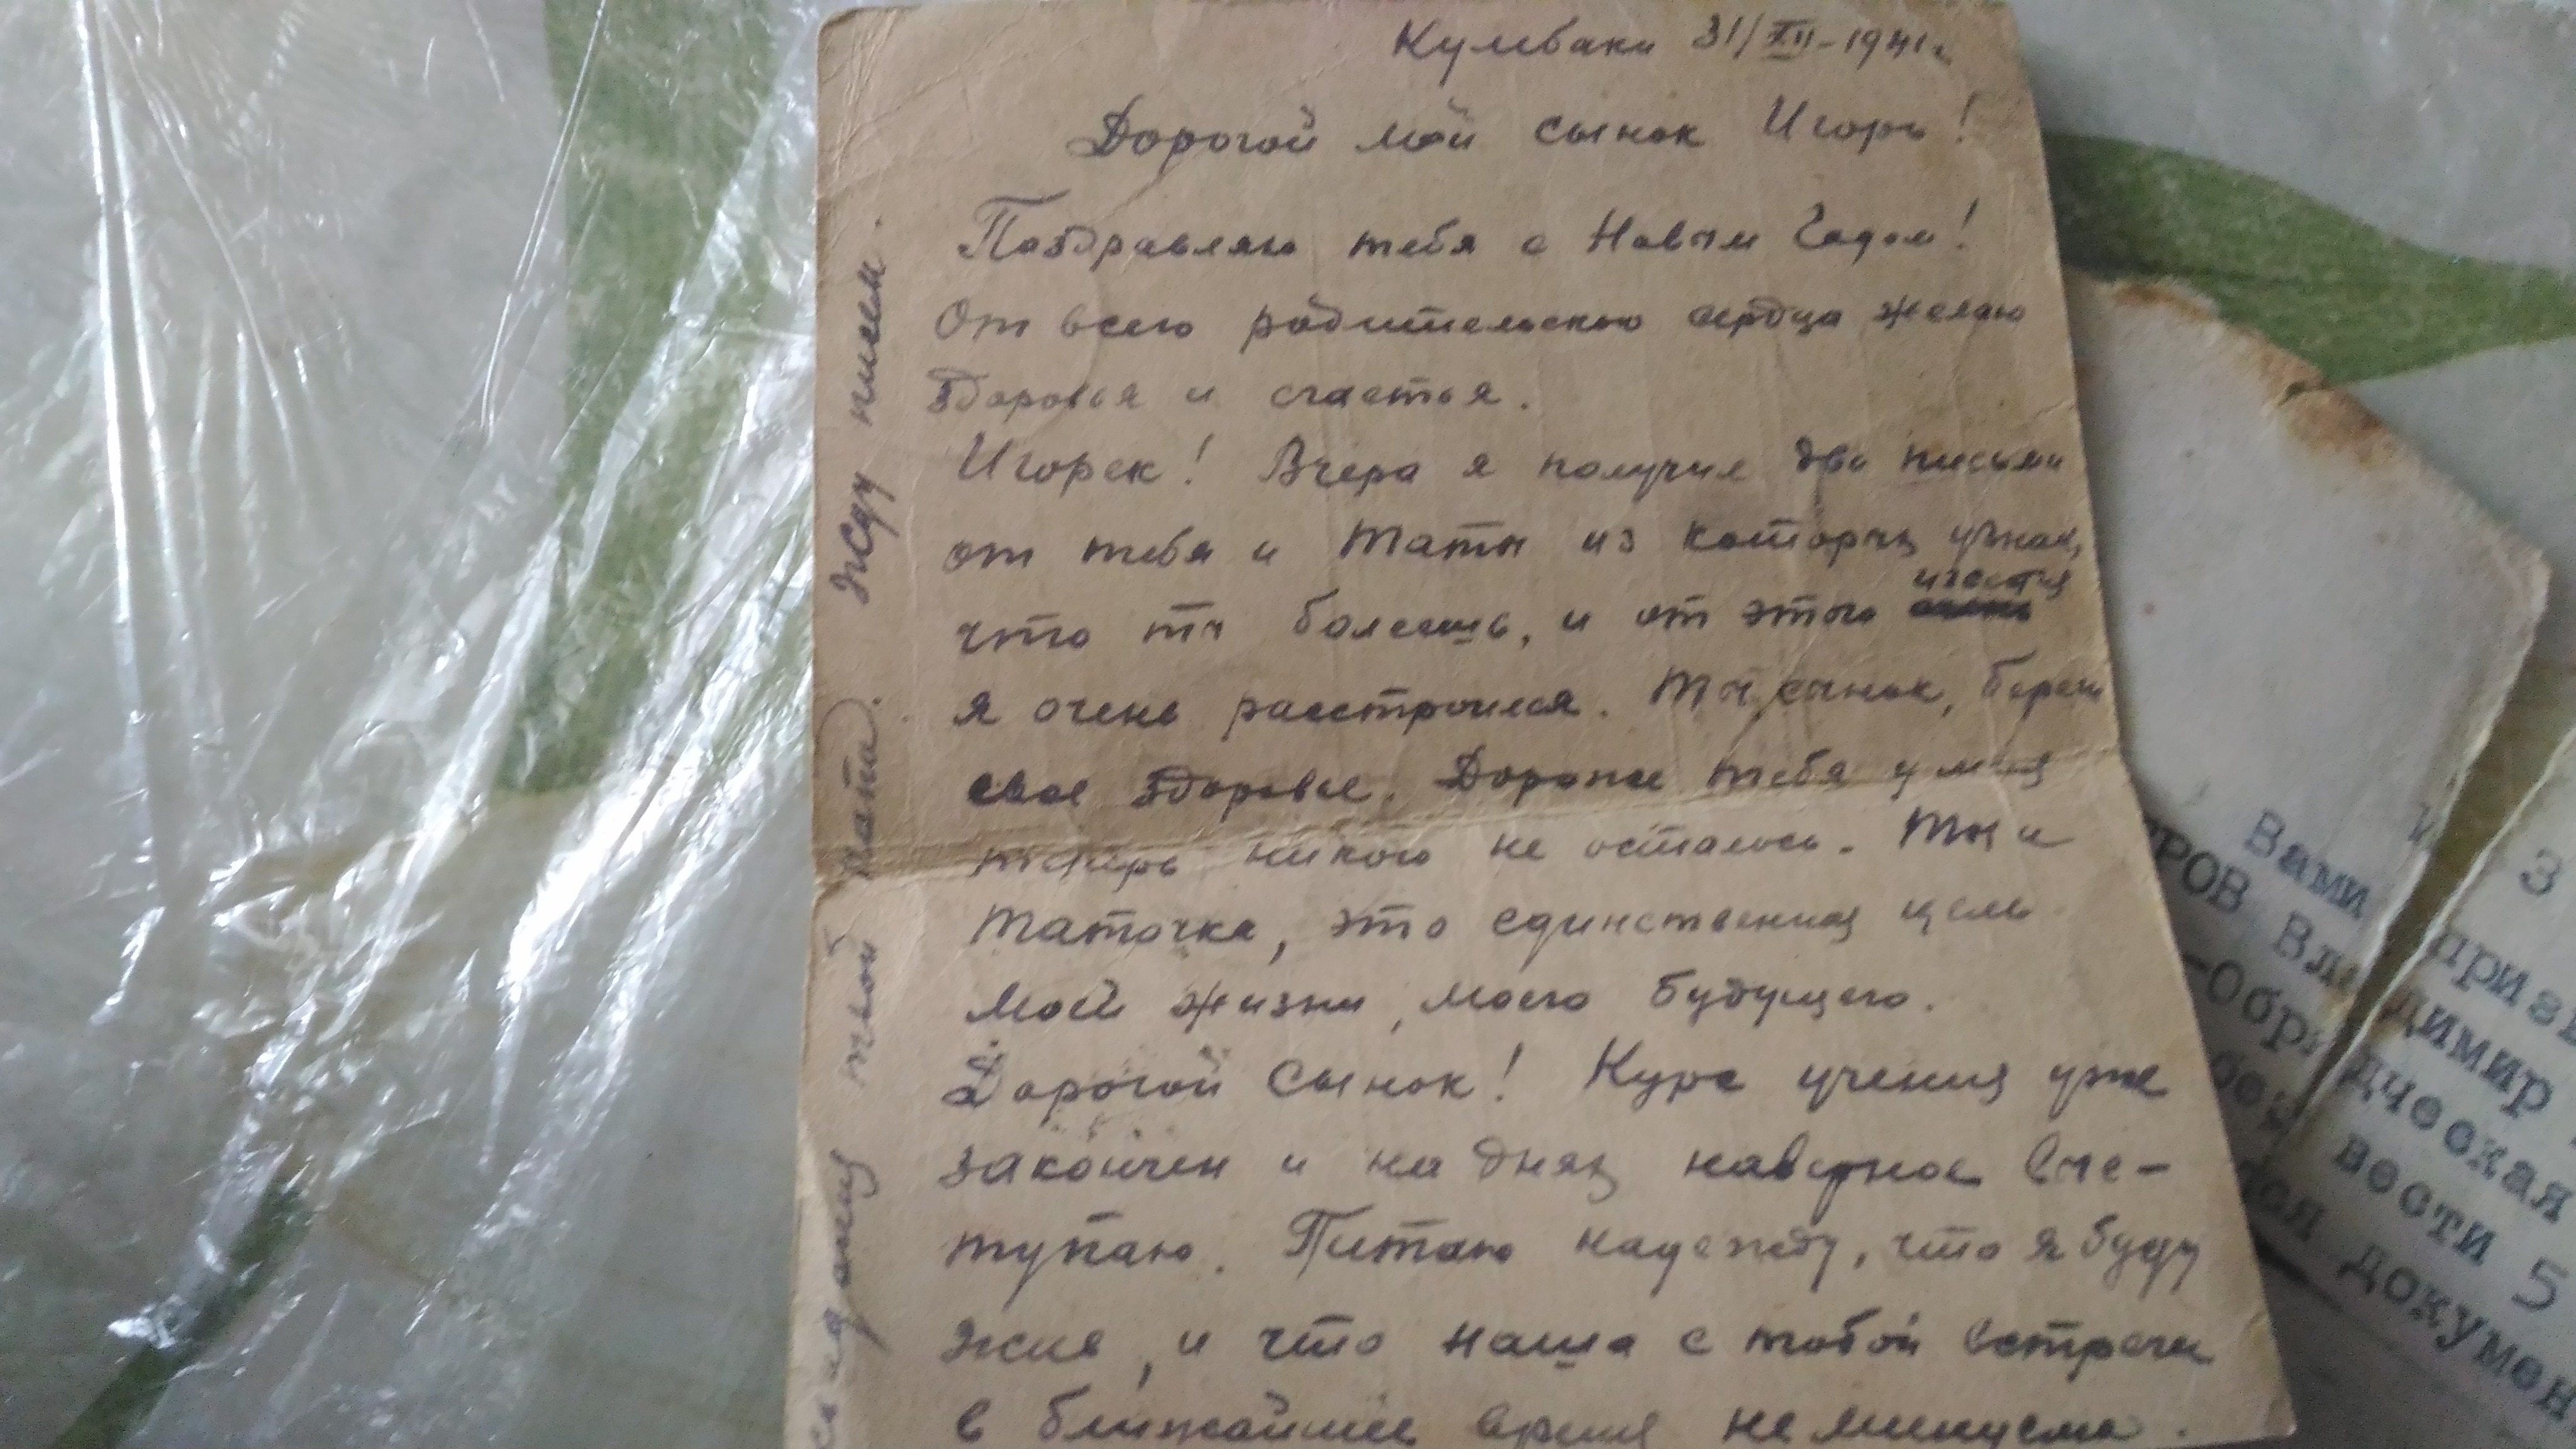 Кулебаки 31/XII-1941г.
Дорогой мой сынок Игорь!
Поздравляю тебя с Новым Годом!
От всего родительского сердца желаю
здоровья и счастья.
Игорек! Вчера я получил два письма
от тебя и Таты из которых узнал,
что ты болеешь, и от этого
известия
я очень расстроился. Ты, сынок, береги
свое здоровье. Дороже тебя у меня
теперь никого не осталось. Ты и
Таточка, это единственная цель
моей жизни, моего будущего.
Дорогой сынок! Курс учения уже
закончен и на днях наверное выс-
тупаю. Питаю надежду, что я буду
жив, и что наша с тобой встреча
в ближайшее время неминуема.
твой папа. Жду писем.
Вами
РОВ Владимир
-Обр дческая
вести 5
докумен
З
приз